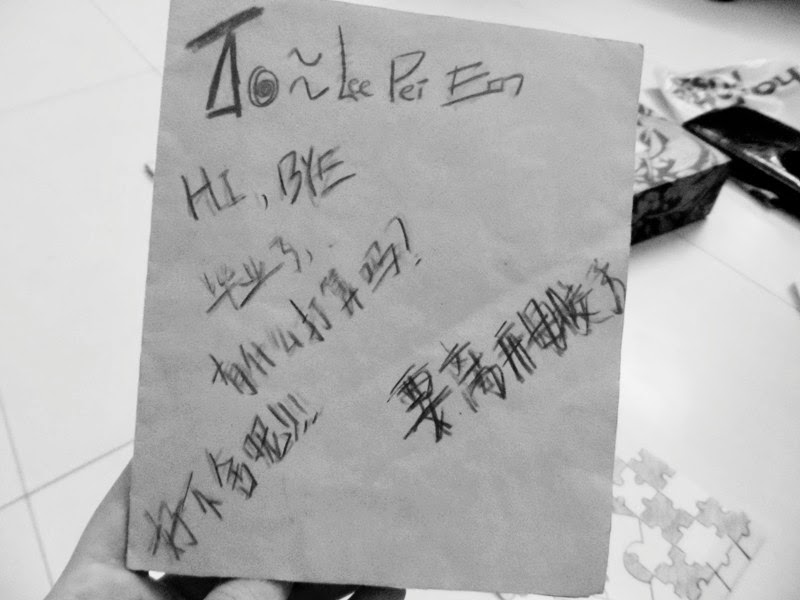 To~~ Lee Pei Em
HI, BYE
毕业了,..
有什么打算吗?
要离开母校了
好不舍呢!!!...